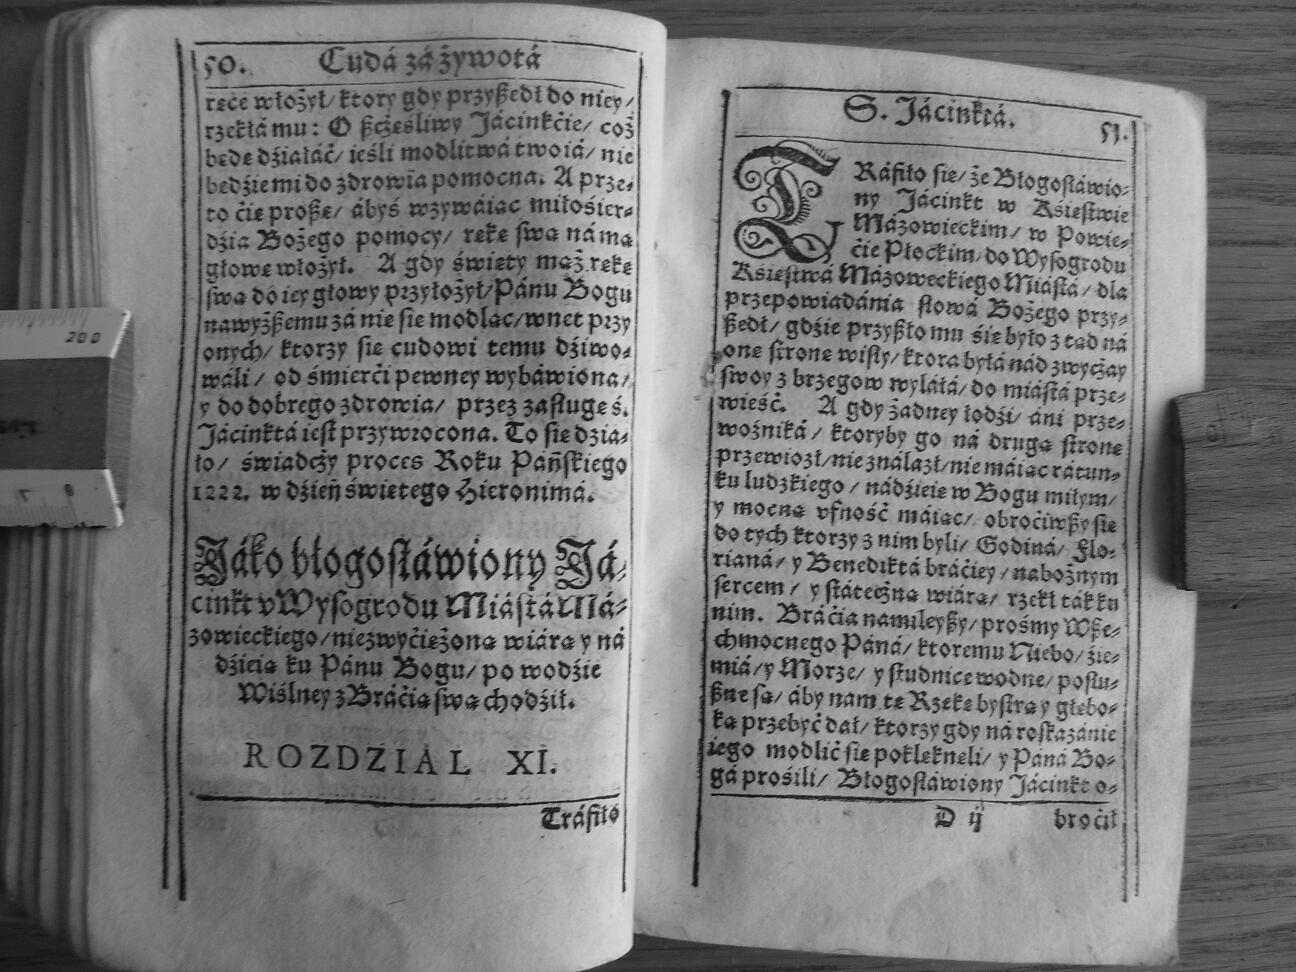 50. Cudá zá żywotá
ręce włożył/ ktory gdy przyßedł do niey/
rzekłá mu: O ßcżęśliwy Jácinkćie/ coż
będę dźiáłáć/ ieśli modlitwá twoiá/ nie
będźie mi do zdrowia pomocna. A prze-
to ćię proßę/ ábyś wzywáiąc miłośier-
dźia Bożego pomocy/ rękę swą ná mą
głowę włożył. A gdy święty mąż rękę
swą do iey głowy przyłożył/ Pánu Bogu
nawyżßemu zá nię się modląc/ wnet przy
onych/ ktorzy się cudowi temu dźiwo-
wáli/ od śmierći pewney wybáwiona/
y do dobrego zdrowia/ przez zasługę ś.
Jácinktá iest przywrocona. To się dzia-
ło/ świadcży proces Roku Páńskiego
1222. w dźień świętego Hieronimá.
Jáko błogosłáwiony Já-
cinkt v Wyßogrodu Miástá Má-
zowieckiego/ niezwyćiężoną wiárą y ná
dźieią ku Pánu Bogu/ po wodźie
Wiślney z Bráćią swą chodźił.
ROZDZIAL XI.
Tráfiło
S. Jácinktá. 51.
TRáfiło się/ że Błogosłáwio-
ny Jácinkt w Kśięstwie
Mázowieckim/ w Powie-
ćie Płockim/ do Wysogrodu
Kśięstwá Mázoweckiego Miástá/ dla
przepowiadánia słowá Bożego przy-
ßedł/ gdźie przyßło mu śię było z tąd ná
onę stronę wisły/ ktora byłá nád zwycżay
swoy z brzegow wylałá/ do miástá prze-
wieść. A gdy żadney łodźi/ áni prze-
woźniká/ ktoryby go ná drugą stronę
przewiozł/ nie ználazł/ nie máiąc rátun-
ku ludzkiego/ nádźieię w Bogu miłym/
y mocną vfność máiąc/ obroćiwßy się
do tych ktorzy z nim byli/ Godiná/ Flo-
rianá/ y Benediktá bráćiey/ nabożnym
sercem/ y státecżną wiárą/ rzekł ták ku
nim. Bráćia namileyßy/ prośmy Wße-
chmocnego Páná/ ktoremu Niebo/ źie-
miá/ y Morze/ y studnice wodne/ posłu-
ßne są/ áby nam tę Rzekę bystrą y głębo-
ką przebyć dał/ ktorzy gdy ná roskazánie
iego modlić się poklęknęli/ y Páná Bo-
gá prośili/ Błogosłáwiony Jácinkt o-
D ij broćił